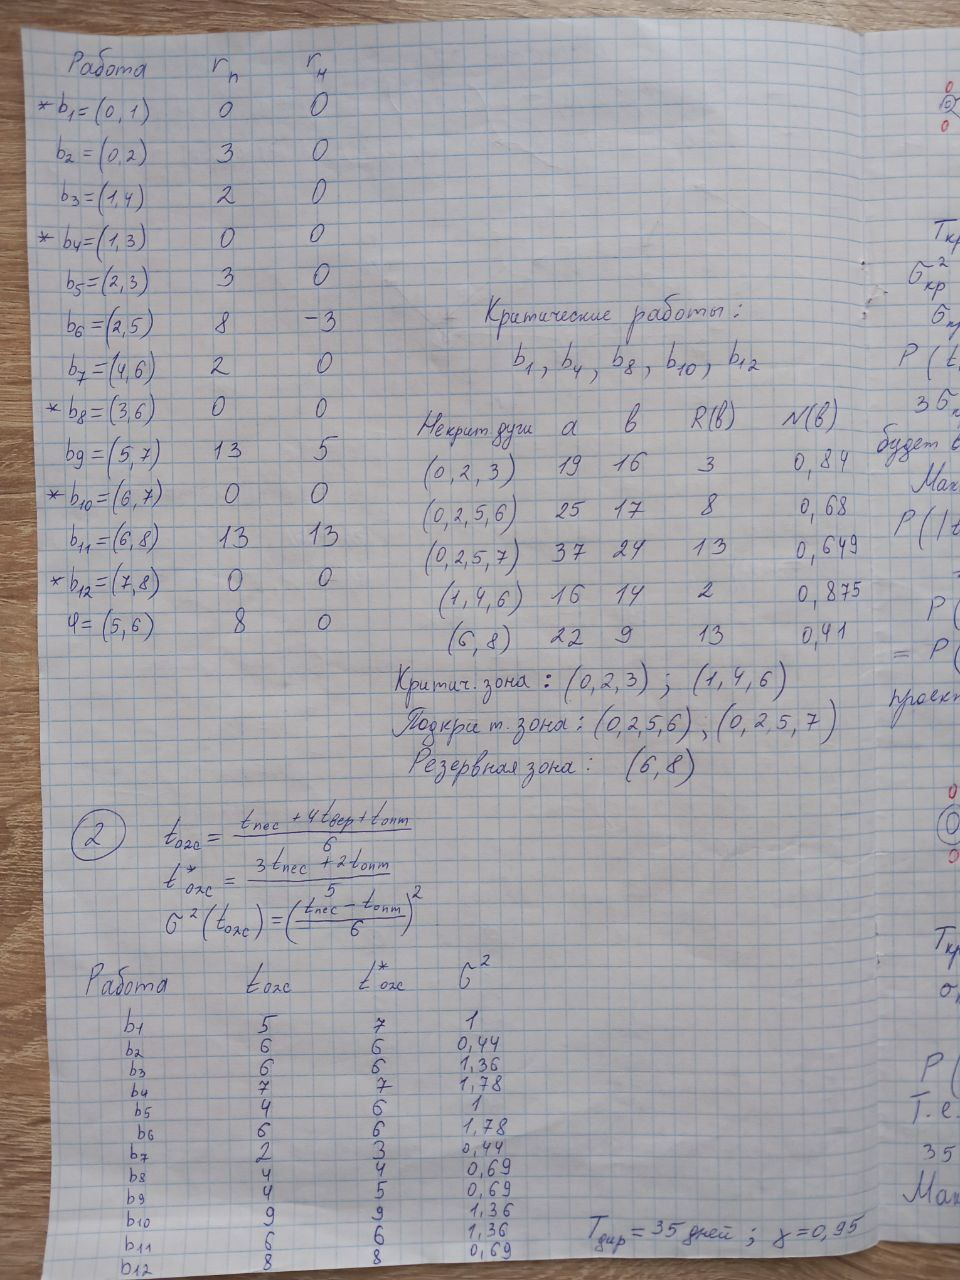 Работа rп rн
* b1=(0,1) 0 0
b2=(0,2) 3 0
b3=(1,4) 2 0
* b4=(1,3) 0 0
b5=(2,3) 3 0
b6=(2,5) 8 -3
b7=(4,6) 2 0
* b8=(3,6) 0 0
b9=(5,7) 13 5
* b10=(6,7) 0 0
b11=(6,8) 13 13
* b12=(7,8) 0 0
φ=(5,6) 8 0
Критические работы:
b1, b4, b8, b10, b12
Некрит. дуги a в R(в) N(в)
(0,2,3) 19 16 3 0,84
(0,2,5,6) 25 17 8 0,68
(0,2,5,7) 37 24 13 0,649
(1,4,6) 16 14 2 0,875
(6,8) 22 9 13 0,41
Критич. зона: (0,2,3); (1,4,6)
Подкрит. зона: (0,2,5,6); (0,2,5,7)
Резервная зона: (6,8)
2
tож = (tпес + 4tвер + tопт)/6
t*ож = (3tпес + 2tопт)/5
σ²(tож) = ((tпес - tопт)/6)²
Работа tож t*ож σ²
b1 5 7 1
b2 6 6 0,44
b3 6 6 1,36
b4 7 7 1,78
b5 4 6 1
b6 6 6 1,78
b7 2 3 0,44
b8 4 4 0,69
b9 4 5 0,69
b10 9 9 1,36
b11 6 6 1,36
b12 8 8 0,69
Tдир = 35 дней; γ=0,95
0
0
0
Tкр
σ²кр
P(t
3σ
будет
P(|t
P(
= P(
проект
0
0
0
Tкр
P(
Т.е.
35